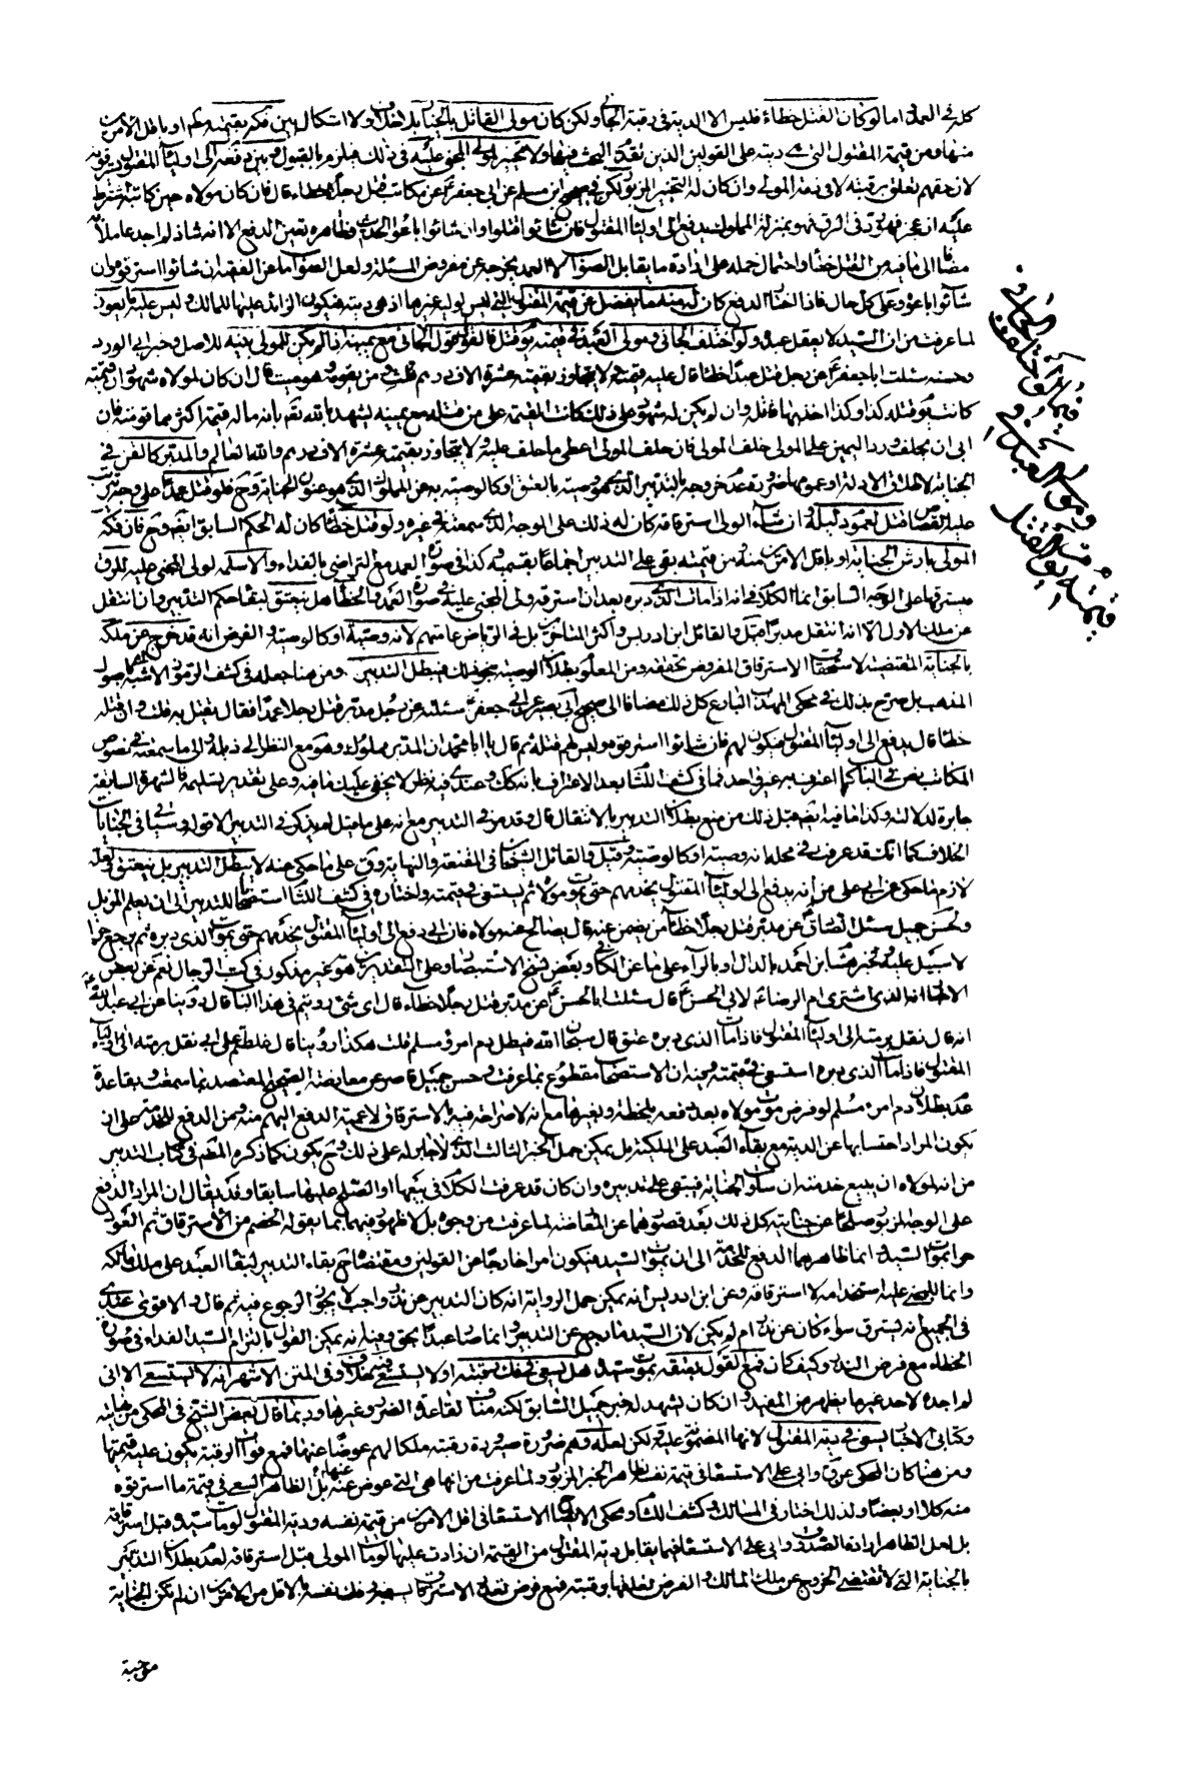 كله في العمد اما لو كان القتل خطاء فليس الا الدية في رقبة الجاني ولكن كان مولى القاتل بالخيار بلا خلاف ولا اشكال بين فكه بقيمته او باقل الامرين
منها ومن قيمة المقتول التي هي ديته على القولين الذين تقدم البحث فيهما ولا تخيير لمولى المجني عليه في ذلك فيلزم بالقبول وبين دفعه الى اولياء المقتول يسترقونه
لان حقهم تعلق برقبته لا بذمة المولى وان كان له التخيير المزبور لكن في صحيح ابن مسلم عن ابي جعفر عن مكاتب قتل رجلا خطاء قال فان كان مولاه حين كاتبه اشترط
عليه ان عجز فهو رد في الرق فهو بمنزلة المملوك يدفع الى اولياء المقتول فان شاؤا قتلوا وان شاؤا باعوا الحديث وظاهره تعين الدفع الا انه شاذ لم اجد عاملا به
مضافا الى ما فيه من القتل خطأ واحتمال حمله على ارادة ما يقابل الصواب لا العمد يخرجه عن مفروض المسئلة ولعل الصواب ما عن الفقيه ان شاؤا استرقوه وان
شاؤا باعوه وعلى كل حال فاذا اختار الدفع كان له منه ما يفضل عن قيمة المقتول التي ليس لوليه غيرها اذ هي ديته فيكون الزائد عليها للمالك وليس عليه ما يعوز
لما عرفت من ان السيد لا يعقل عبده ولو اختلف الجاني ومولى العبد في قيمته يوم قتل فالقول قول الجاني مع يمينه اذا لم يكن للمولى بينة للاصل وخبر ابي الورد
وحسنه سئلت ابا جعفر عن رجل قتل عبدا خطأ قال عليه قيمته ولا يتجاوز بقيمته عشرة الاف درهم قلت ومن يقومه وهو ميت قال ان كان لمولاه شهود ان قيمته
كانت يوم قتله كذا وكذا اخذ بها قاتله وان لم يكن له شهود على ذلك كانت القيمة على من قتله مع يمينه يشهد بالله تعالى بانه ما له قيمة اكثر مما قومته فان
ابى ان يحلف ورد اليمين على المولى حلف المولى فان حلف المولى اعطى ما حلف عليه ولا يتجاوز بقيمته عشرة الاف درهم والله العالم والمدبر كالقن في
الجناية لاطلاق الادلة وعمومها ضرورة عدم خروجه بالتدبير الذي هو وصية بالعتق او كالوصية به عن المملوك الذي هو عنوان الجناية وح فلو قتل عمدا على وجه يترتب
عليه القصاص قتل لعموم دليله وان شاء الولي استرقاقه كان له ذلك على الوجه الذي سمعته في غيره ولو قتل خطأ كان له الحكم السابق ايضا وح فان فكه
المولى بارش الجناية او باقل الامرين منه ومن قيمته بقي على التدبير اجماعا بقسميه وكذا في صورة العمد مع التراضي بالفداء والا سلمه لولي المجني عليه للرق
مسترقا على الوجه السابق انما الكلام في انه اذا مات الذي دبره بعد ان استرقه ولي المجني عليه في صورة العمد والخطأ هل ينعتق لبقاء حكم التدبير وان انتقل
عن ملك الاول الا انه انتقل مدبرا قيل والقائل ابن ادريس واكثر المتاخرين بل في الرياض عامتهم لا لانه وصية او كالوصية والفرض انه قد خرج عن ملكه
بالجناية المقتضية لاستحقاق الاسترقاق المفروض تحققه ومن المعلوم بطلان الوصية بنحو ذلك فيبطل التدبير ومن هنا جعله في كشف الرموز الاشبه باصول
المذهب بل صرح بذلك في محكي المهذب البارع كل ذلك مضافا الى صحيح ابي بصير عن ابي جعفر سئلته عن رجل مدبر قتل رجلا عمدا فقال يقتل به قلت وان قتله
خطأ قال يدفع الى اولياء المقتول فيكون لهم فان شاؤا استرقوه وليس لهم قتله ثم قال يا ابا محمد ان المدبر مملوك وهو مع النظر الى ذيله والى ما سمعته في نصوص
المكاتب نص في الباب كما اعترف به غير واحد فما في كشف اللثام بعد الاعتراف بانه كك وعندي فيه نظر لا يخفى عليك ما فيه وعلى تقدير تسليمه فالشهرة السابقة
جابرة لدلالته وكذا ما فيه ايضا قبل ذلك من منع بطلان التدبير بالانتقال قال وقد مر في التدبير مع انه على ما قيل لم يذكر في التدبير الا قولا وسياتي في الجنايات
الخلاف كما انك قد عرفت في محله انه وصية او كالوصية وقيل والقائل الشيخان في المقنعة والنهاية وق على ما حكي عنه لا يبطل التدبير بل ينعتق ولعله
لازم ما حكي عن ابي علي من انه يدفع الى اولياء المقتول يخدمهم حتى يموت مولاه ثم يستسعى في قيمته واختاره في كشف اللثام استصحابا للتدبير الى ان يعلم المزيل
ولحسن جميل سئل الصادق عن مدبر قتل رجلا خطأ من يضمن عنه قال يصالح عنه مولاه فان ابى دفع الى اولياء المقتول يخدمهم حتى يموت الذي دبره ثم يرجع حرا
لا سبيل عليه وخبر هشام بن احمد بالدال او بالراء على ما عن الكافي وبعض نسخ الاستبصار وعلى التقديرين هو غير مذكور في كتب الرجال نعم عن بعض
الاخبار انه الذي اشترى ام الرضا لابي الحسن قال سئلت ابا الحسن عن مدبر قتل رجلا خطاء قال اي شئ رويتم في هذا الباب قال روينا عن ابي عبد الله
انه قال يتل برمته الى اولياء المقتول فاذا مات الذي دبره عتق قال سبحان الله فيطل دم امرئ مسلم قلت هكذا روينا قال غلطتم على ابي يتل برمته الى اولياء
المقتول فاذا مات الذي دبره استسعى في قيمته وفيه ان الاستصحاب مقطوع بما عرفت وحسن جميل قاصر عن معارضة الصحيح المعتضد بما سمعت وبقاعدة
عدم بطلان دم امرئ مسلم لو فرض موت مولاه بعد دفعه بلحظة وبغيرها مع انه لا صراحة فيه بالاسترقاق لاعمية الدفع اليهم منه ومن الدفع للخدمة على ان
يكون المراد احتسابها عن الدية مع بقاء العبد على الملكية بل يمكن حمل الخبر الثالث الذي لا جابر له على ذلك وح يكون كما ذكره المفيد في كتاب التدبير
من انه لمولاه ان يبيع خدمته ان ساوت الجناية فيبقى على تدبيره وان كان قد عرفت الكلام في بيعها او الصلح عليها سابقا وقد يقال ان المراد الدفع
على الوجه المزبور صلحا عن جنايته كل ذلك بعد قصورهما عن المعارضة لما عرفت من وجوه بل لا ظهور فيهما بما يقوله الخصم من الاسترقاق ثم العود
حرا بموت السيد وانما ظاهرهما الدفع للخدمة الى ان يموت السيد فيكون امرا خارجا عن القولين ومقتضاه ح بقاء التدبير لبقاء العبد على ملك مالكه
وانما للمجني عليه استخدامه لا استرقاقه وعن ابن ادريس انه يمكن حمل الرواية انه كان التدبير عن نذر واجب لا يجوز الرجوع فيه ثم قال والاقوى عندي
في الجميع انه يسترق سواء كان عن نذر ام لم يكن لان السيد ما رجع عن التدبير وانما صار عبدا بحق وفيه انه يمكن القول بالتزام السيد الفداء في صورة
الخطاء مع فرض النذر وكيف كان فمع القول بعتقه بموت سيده هل يسعى في فك رقبته او لا يستسعى فيه خلاف وفي المتن الاشهر انه لا يستسعى الا اني
لم اجده لاحد غيره ما يظهر من المفيد وان كان يشهد له خبر جميل السابق لكنه مناف لقاعدة الضرر وغيرها وربما قال بعض الشيخ في المحكي من نهايته
وكتابي الاخبار يسعى في دية المقتول لانها المضمونة عليه لكن لعله وهم ضرورة صيرورة رقبته ملكا لهم عوضا عنها فمع فوات الرقبة يكون عليه قيمتها
ومن هنا كان المحكي عن ق وابي علي الاستسقا في قيمة نفسه لظاهر الخبر المزبور ولما عرفت من انها هي التي عوض عنه بل الظاهر السعي في قيمة ما استرقوه
منه كلا او بعضا ولذلك اختار في المسالك وكشف اللثام ومحكي الايضاح الاستسعاء في اقل الامرين من قيمة نفسه ودية المقتول لو مات سيده قبل استرقاقه
بل لعل الظاهر ارادة الصدوق وابي علي الاستسعاء فيما يقابل دية المقتول من القيمة ان زادت عليها لو مات المولى قبل استرقاقه لعدم بطلان التدبير
بالجناية التي لا تقتضي الخروج عن ملك المالك والفرض تعلقها برقبته فمع فرض تعذر الاسترقاق يسعى في فك نفسه بالاقل من الامرين ان لم تكن الجناية
فيما لو اختلف الجاني
ومولى العبد في
قيمته يوم القتل
موجبة